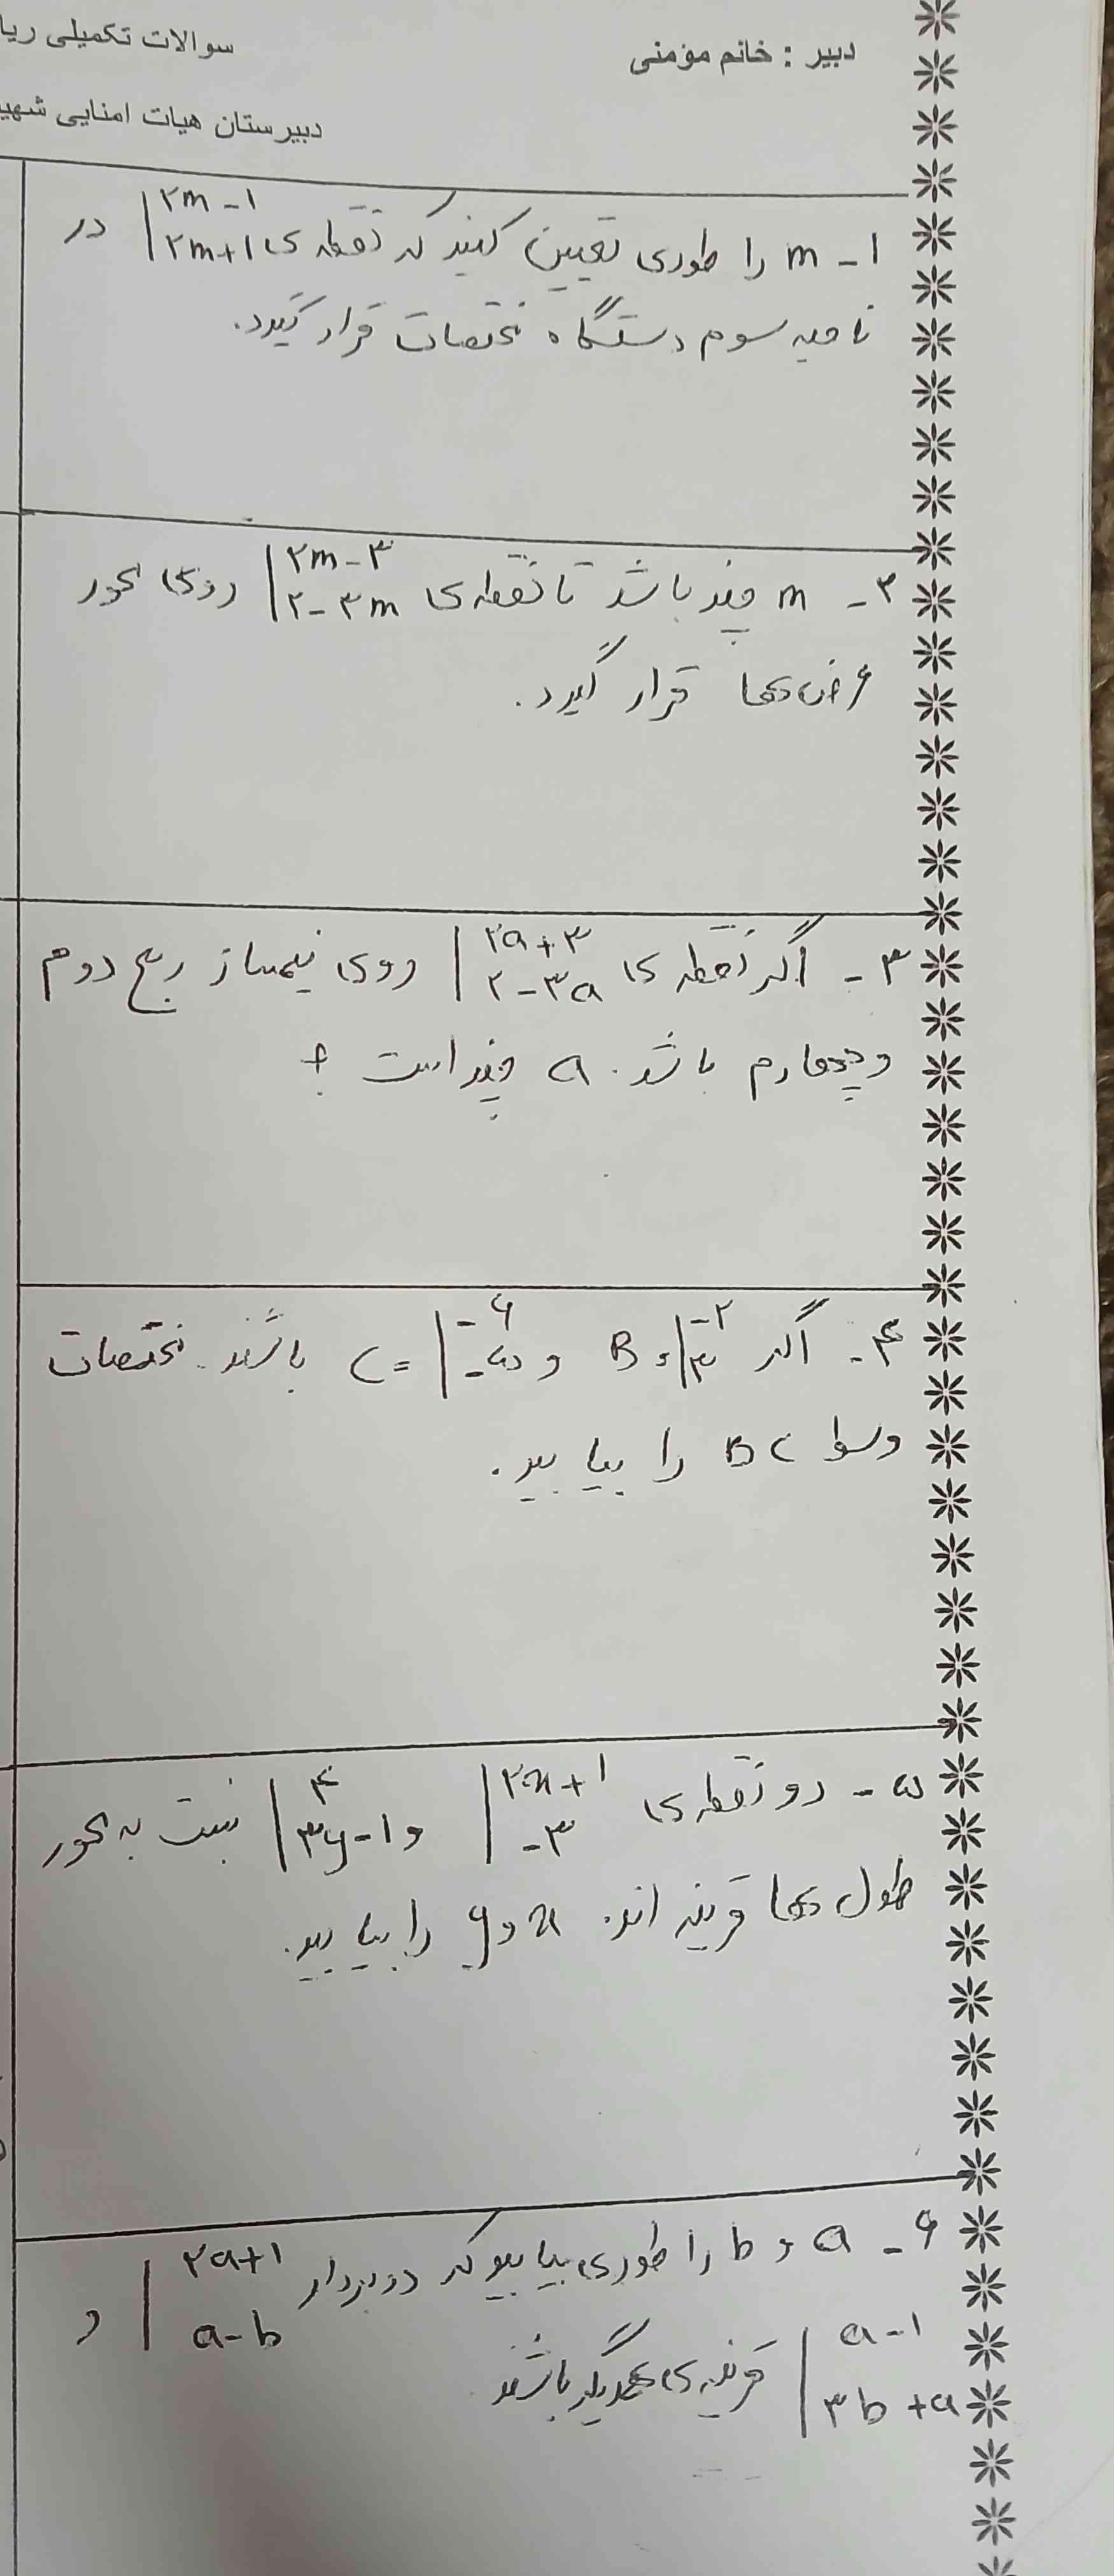 سوالات تکمیلی ریا
دبیر : خانم مؤمنی
دبیرستان هیات امنایی شهی
۱- m را طوری تعیین کنید که نقطه ی |۲m-۱ ۲m+۱ در
ناحیه سوم دستگاه مختصات قرار گیرد.
۲- m چند باشد تا نقطه ی |۲m-۳ ۲-۳m روی محور
عرض ها قرار گیرد.
۳- اگر نقطه ی |۲a+۳ ۲-۳a روی نیمساز ربع دوم
و چهارم باشد. a چند است ؟
۴- اگر B=|-۲ ۳ و C=|-۶ -۵ باشند. مختصات
وسط BC را بیابید.
۵- دو نقطه ی |۲x+۱ -۳ و |۴ ۳y-۱ نسبت به محور
طول ها قرینه اند. x و y را بیابید.
۶- a و b را طوری بیابید که دو بردار |۲a+۱ a-b و
|a-۱ ۳b+a قرینه ی همدیگر باشند.